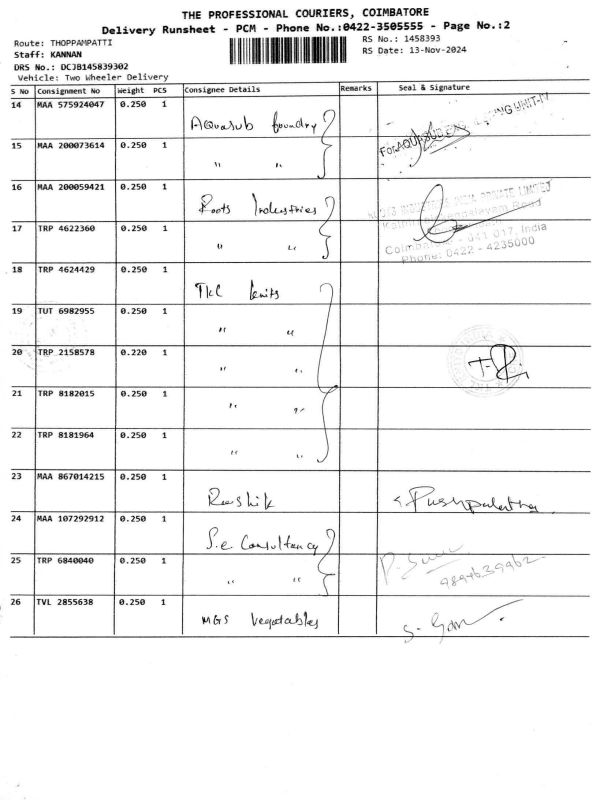 THE PROFESSIONAL COURIERS, COIMBATORE
Delivery Runsheet - PCM - Phone No.:0422-3505555 - Page No.:2
Route: THOPPAMPATTI
RS No.: 1458393
Staff: KANNAN
RS Date: 13-Nov-2024
DRS No.: DCJB145839302
Vehicle: Two Wheeler Delivery
S No Consignment No Weight PCS Consignee Details Remarks Seal & Signature
14 MAA 575924047 0.250 1 Aquasub foundry
15 MAA 200073614 0.250 1 " "
16 MAA 200059421 0.250 1 Roots Industries
17 TRP 4622360 0.250 1 " "
Coimbatore - 641 017, India
Phone: 0422 - 4235000
18 TRP 4624429 0.250 1 TKC knits
19 TUT 6982955 0.250 1 " "
20 TRP 2158578 0.220 1 " "
21 TRP 8182015 0.250 1 " "
22 TRP 8181964 0.250 1 " "
23 MAA 867014215 0.250 1 Rashik S. Pushpalatha
24 MAA 107292912 0.250 1 S.e. Consultancy
25 TRP 6840040 0.250 1 " "
9894639962
26 TVL 2855638 0.250 1 MGS Vegetables